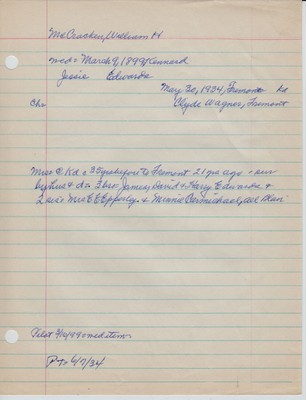 McCracken, William H
med = March 9, 1899, Kennard
Jessie Edwards
May 30, 1934, Fremont
Ch: Clyde Wagner, Fremont
Mrs C Kd = 35 yrs before to Fremont 21 yrs ago = sur
by hus & d = 3 bros, James, David & Harry Edwards &
2 sis = Mrs E E Epperly & Minnie Carmichael, all Blair
Pilot 3/16/99 med item
P T = 6/7/34